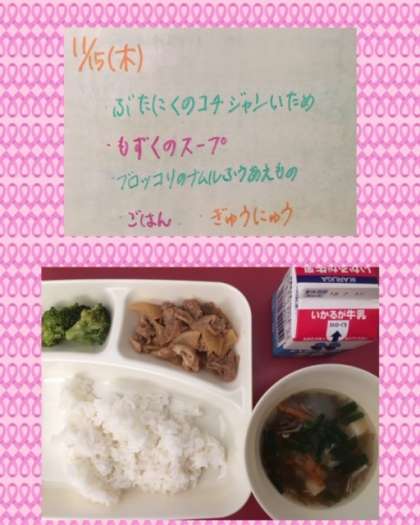 11/15(木)
・ぶたにくのコチジャンいため
・もずくのスープ
・ブロッコリのナムルふうあえもの
・ごはん ・ぎゅうにゅう
いかるが牛乳
IKARUGA
いかるが牛乳